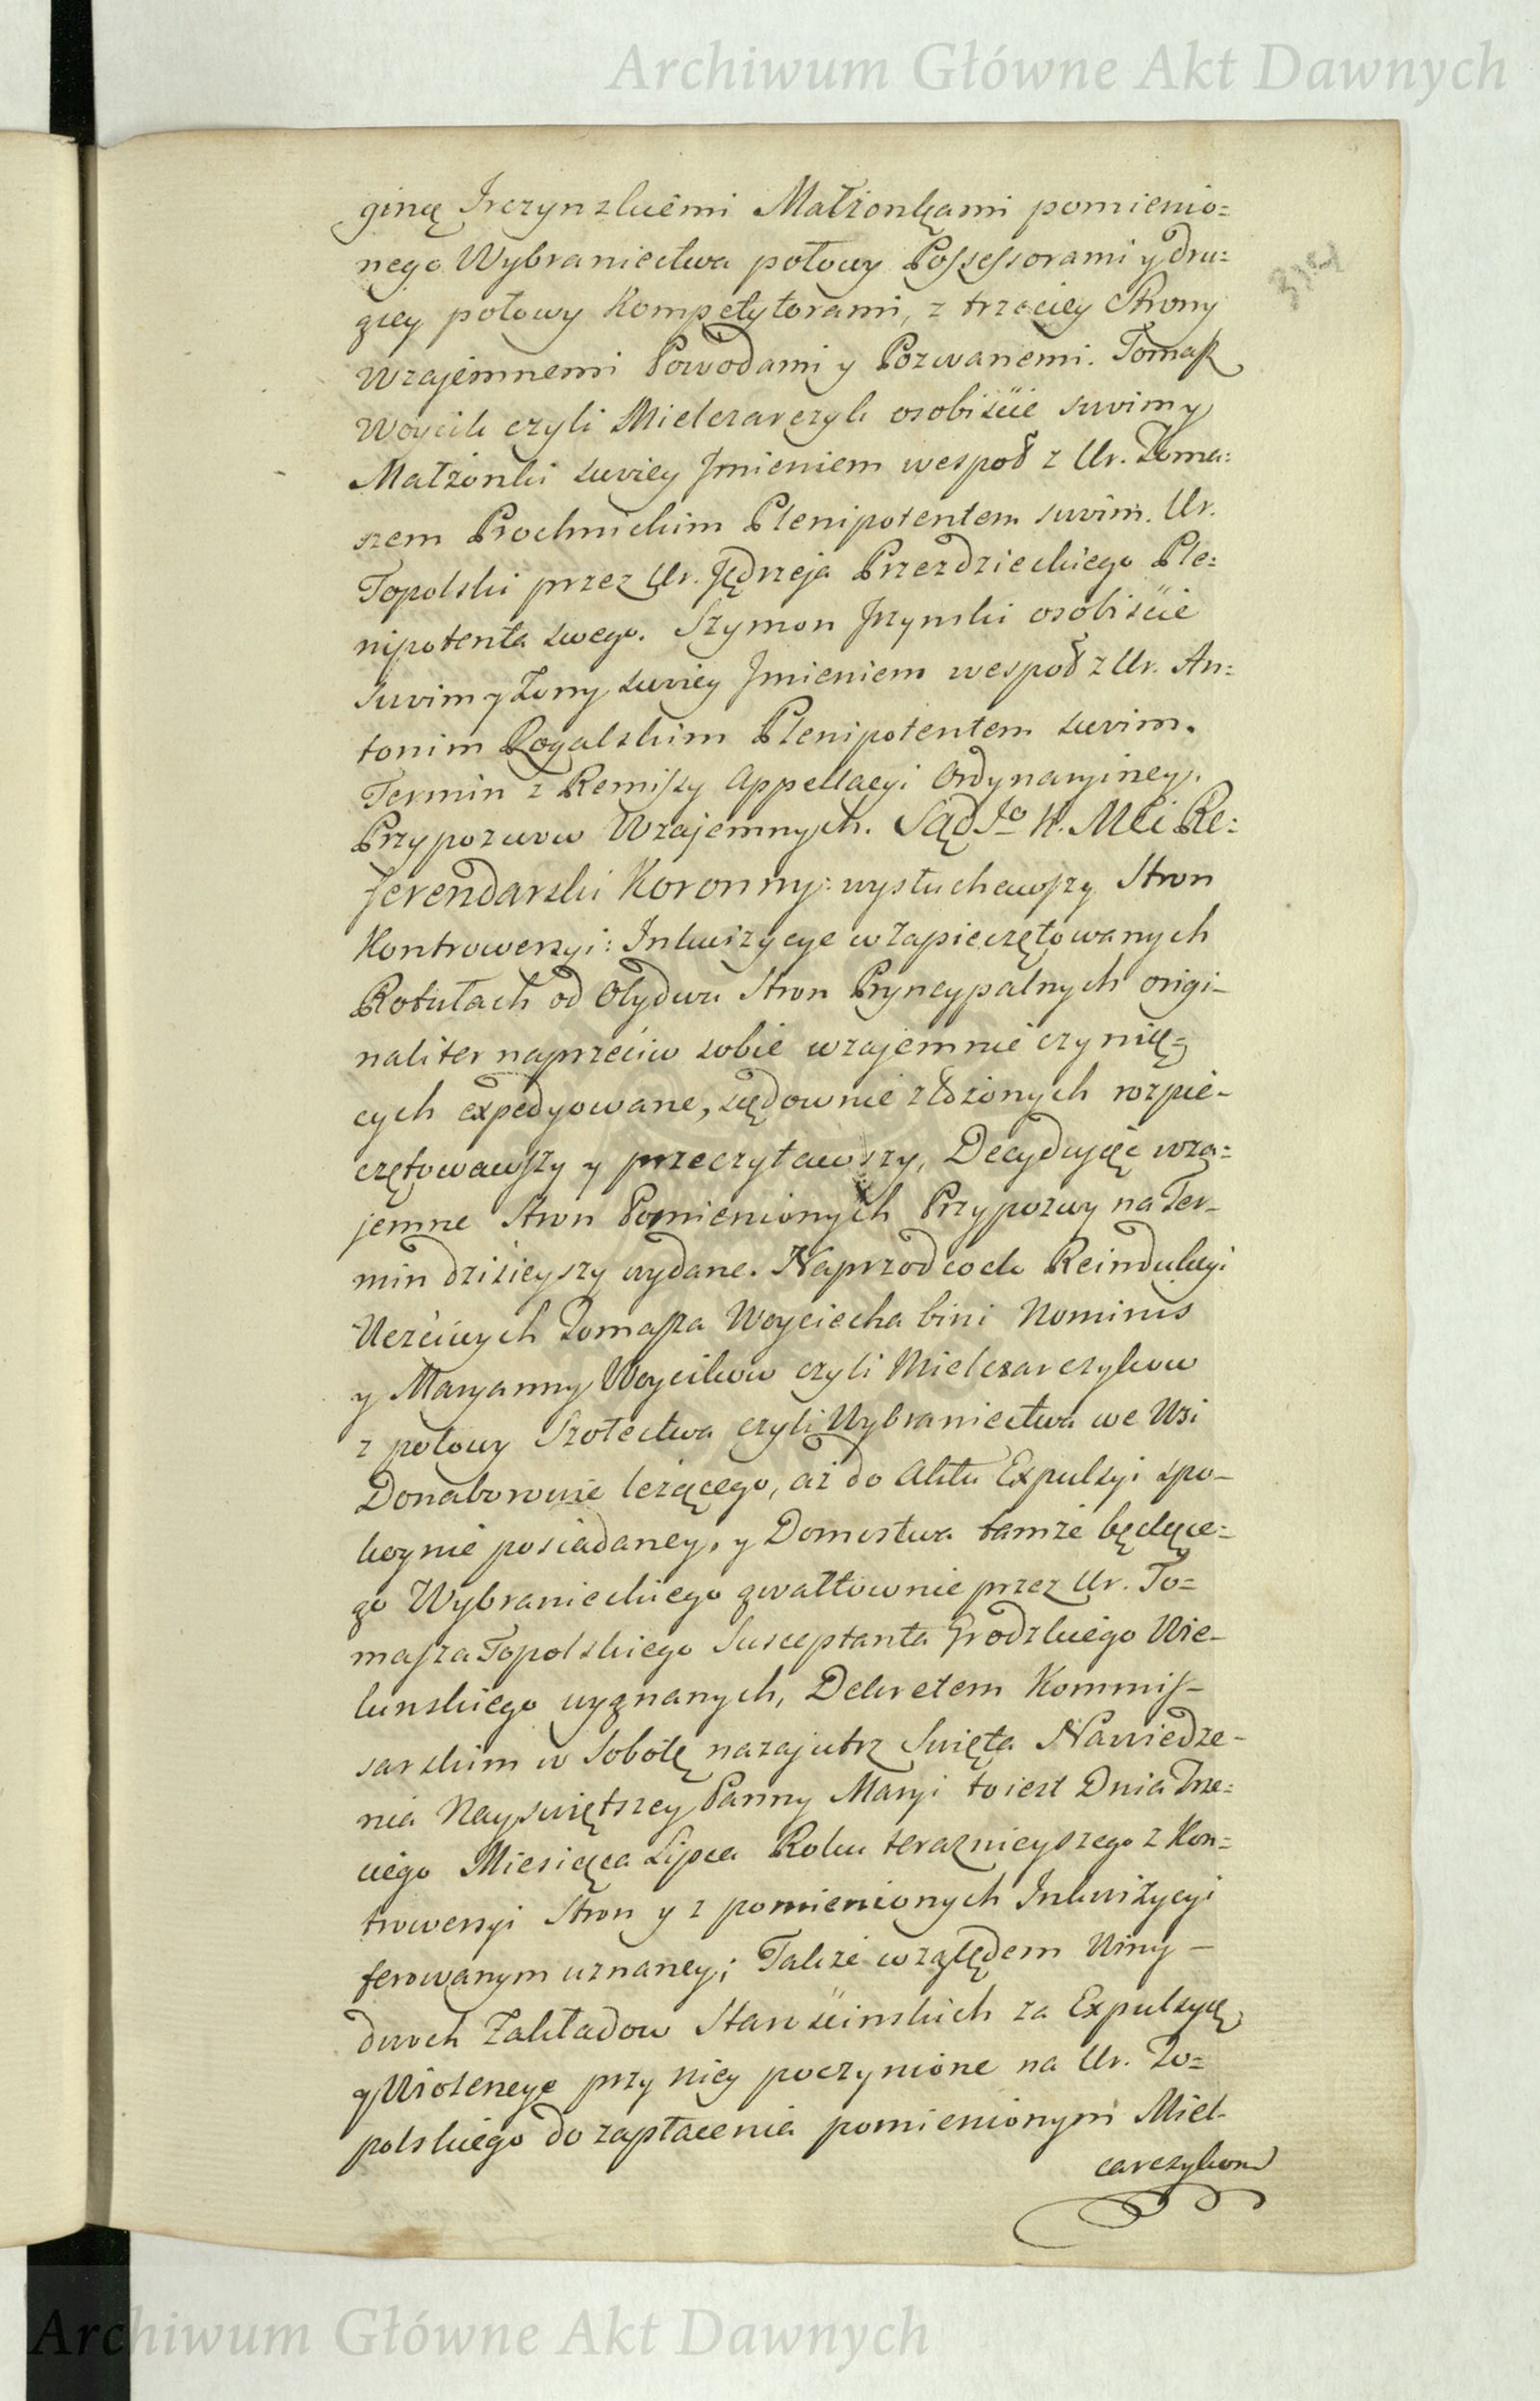 Archiwum Główne Akt Dawnych
giną Irczynskiemi Małżonkami pomienio=
nego Wybraniectwa połowy Possessorami y dru=
giey połowy Kompetytorami, z trzeciey Strony
Wzajemnemi Powodami y Pozwanemi. Tomasz
Woycik czyli Mielczarczyk osobiście swim y
Małżonki swiey Jmieniem wespoł z Ur. Toma=
szem Prochnickim Plenipotentem swim. Ur.
Topolski przez Ur. Jędrzeja Przezdzieckiego Ple=
nipotenta swego. Szymon Jrzynski osobiście
swim y Żony swiey Jmieniem wespoł z Ur. An=
tonim Rogalskim Plenipotentem swim.
Termin z Remissy Appellacyi Ordynaryiney.
Przypozwow Wzajemnych. Sąd Jo K. Mci Re:
ferendarski Koronny: wysłuchawszy Stron
Kontrowersyi: Inkwizycye w zapieczętowanych
Rotułach od Obydwu Stron Pryncypalnych origi-
naliter naprzeciw sobie wzajemnie czynią=
cych expedyowane, sądownie złożonych rozpie-
czętowawszy y przeczytawszy, Decydując wza=
jemne Stron Pomienionych Przypozwy na Ter-
min dzisieyszy wydane. Naprzod co do Reindukcyi
Uczciwych Tomasza Woyciecha bini Nominis
y Maryanny Woycikow czyli Mielczarczykow
z połowy Szołectwa czyli Wybraniectwa we Wsi
Donaborowie leżącego, aż do Aktu Expulsyi spo-
koynie posiadaney, y Domostwa tamże będące=
go Wybranieckiego gwałtownie przez Ur. To=
masza Topolskiego Susceptanta Grodzkiego Wie-
lunskiego wygnanych, Dekretem Kommis-
sarskim w Sobotę nazajutrz Swięta Nawiedze-
nia Nayswiętszey Panny Maryi to iest Dnia Trze=
ciego Miesiąca Lipca Roku teraznieyszego z Kon=
trowersyi Stron y z pomienionych Inkwizycyi
ferowanym uznaney; Także względem Winy -
dwoch Zakładow Starościnskich za Expulsyą
y Wiolencye przy niey poczynione na Ur. To=
polskiego do zapłacenia pomienionym Miel-
carczykom
Archiwum Główne Akt Dawnych